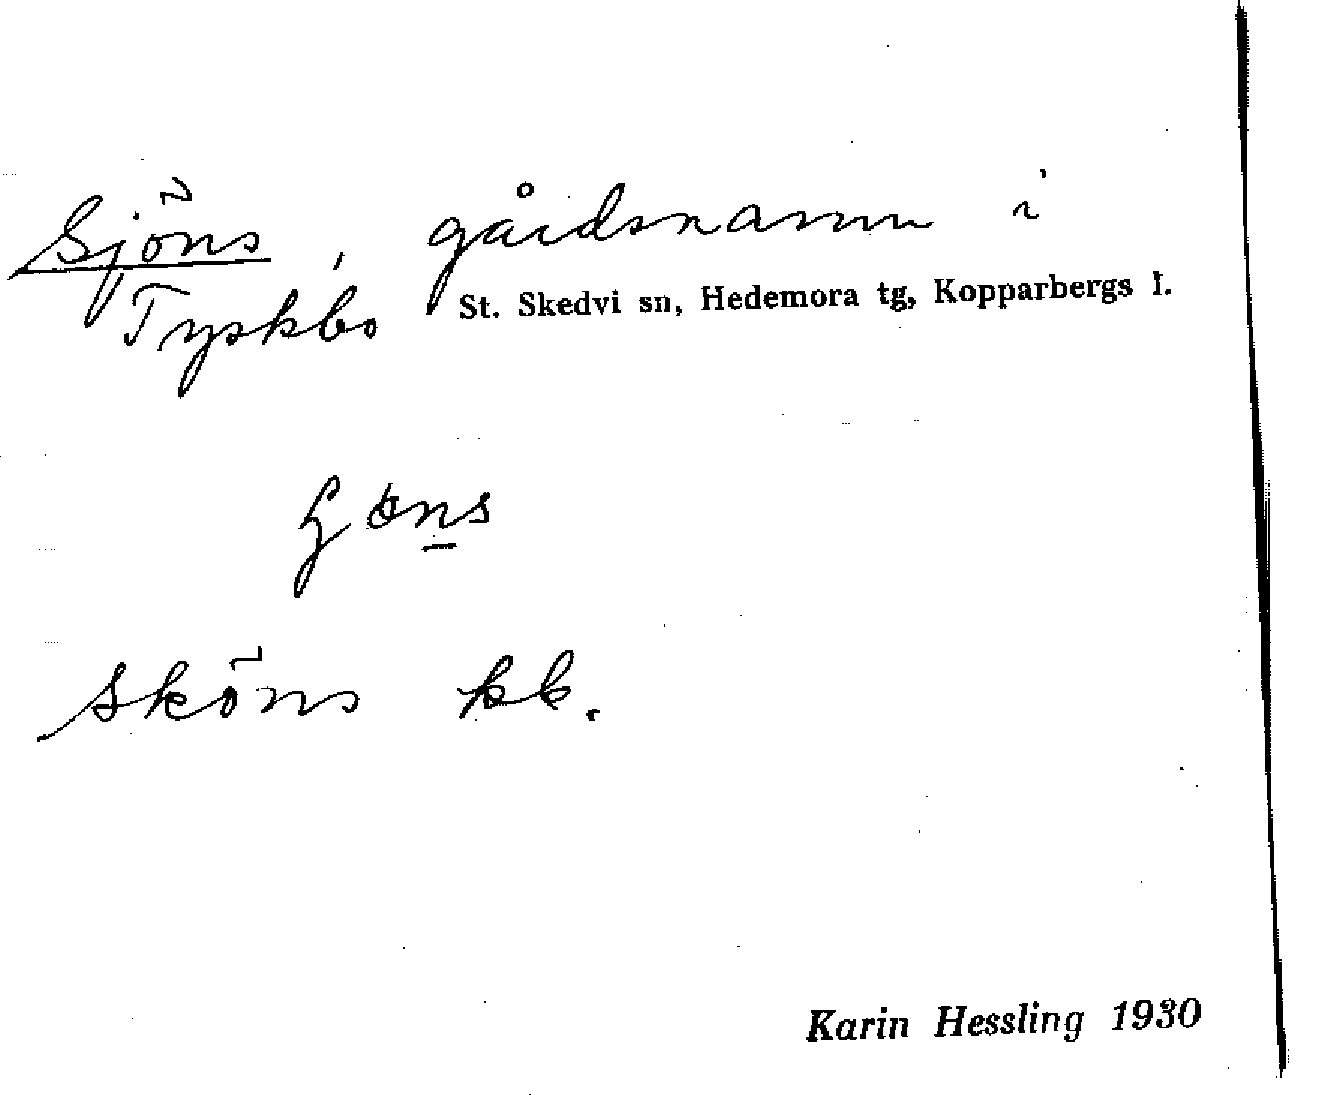 Sjöns, gårdsnamn i
Tyskbo St. Skedvi sn, Hedemora tg, Kopparbergs l.
sköns kk.
Karin Hessling 1930